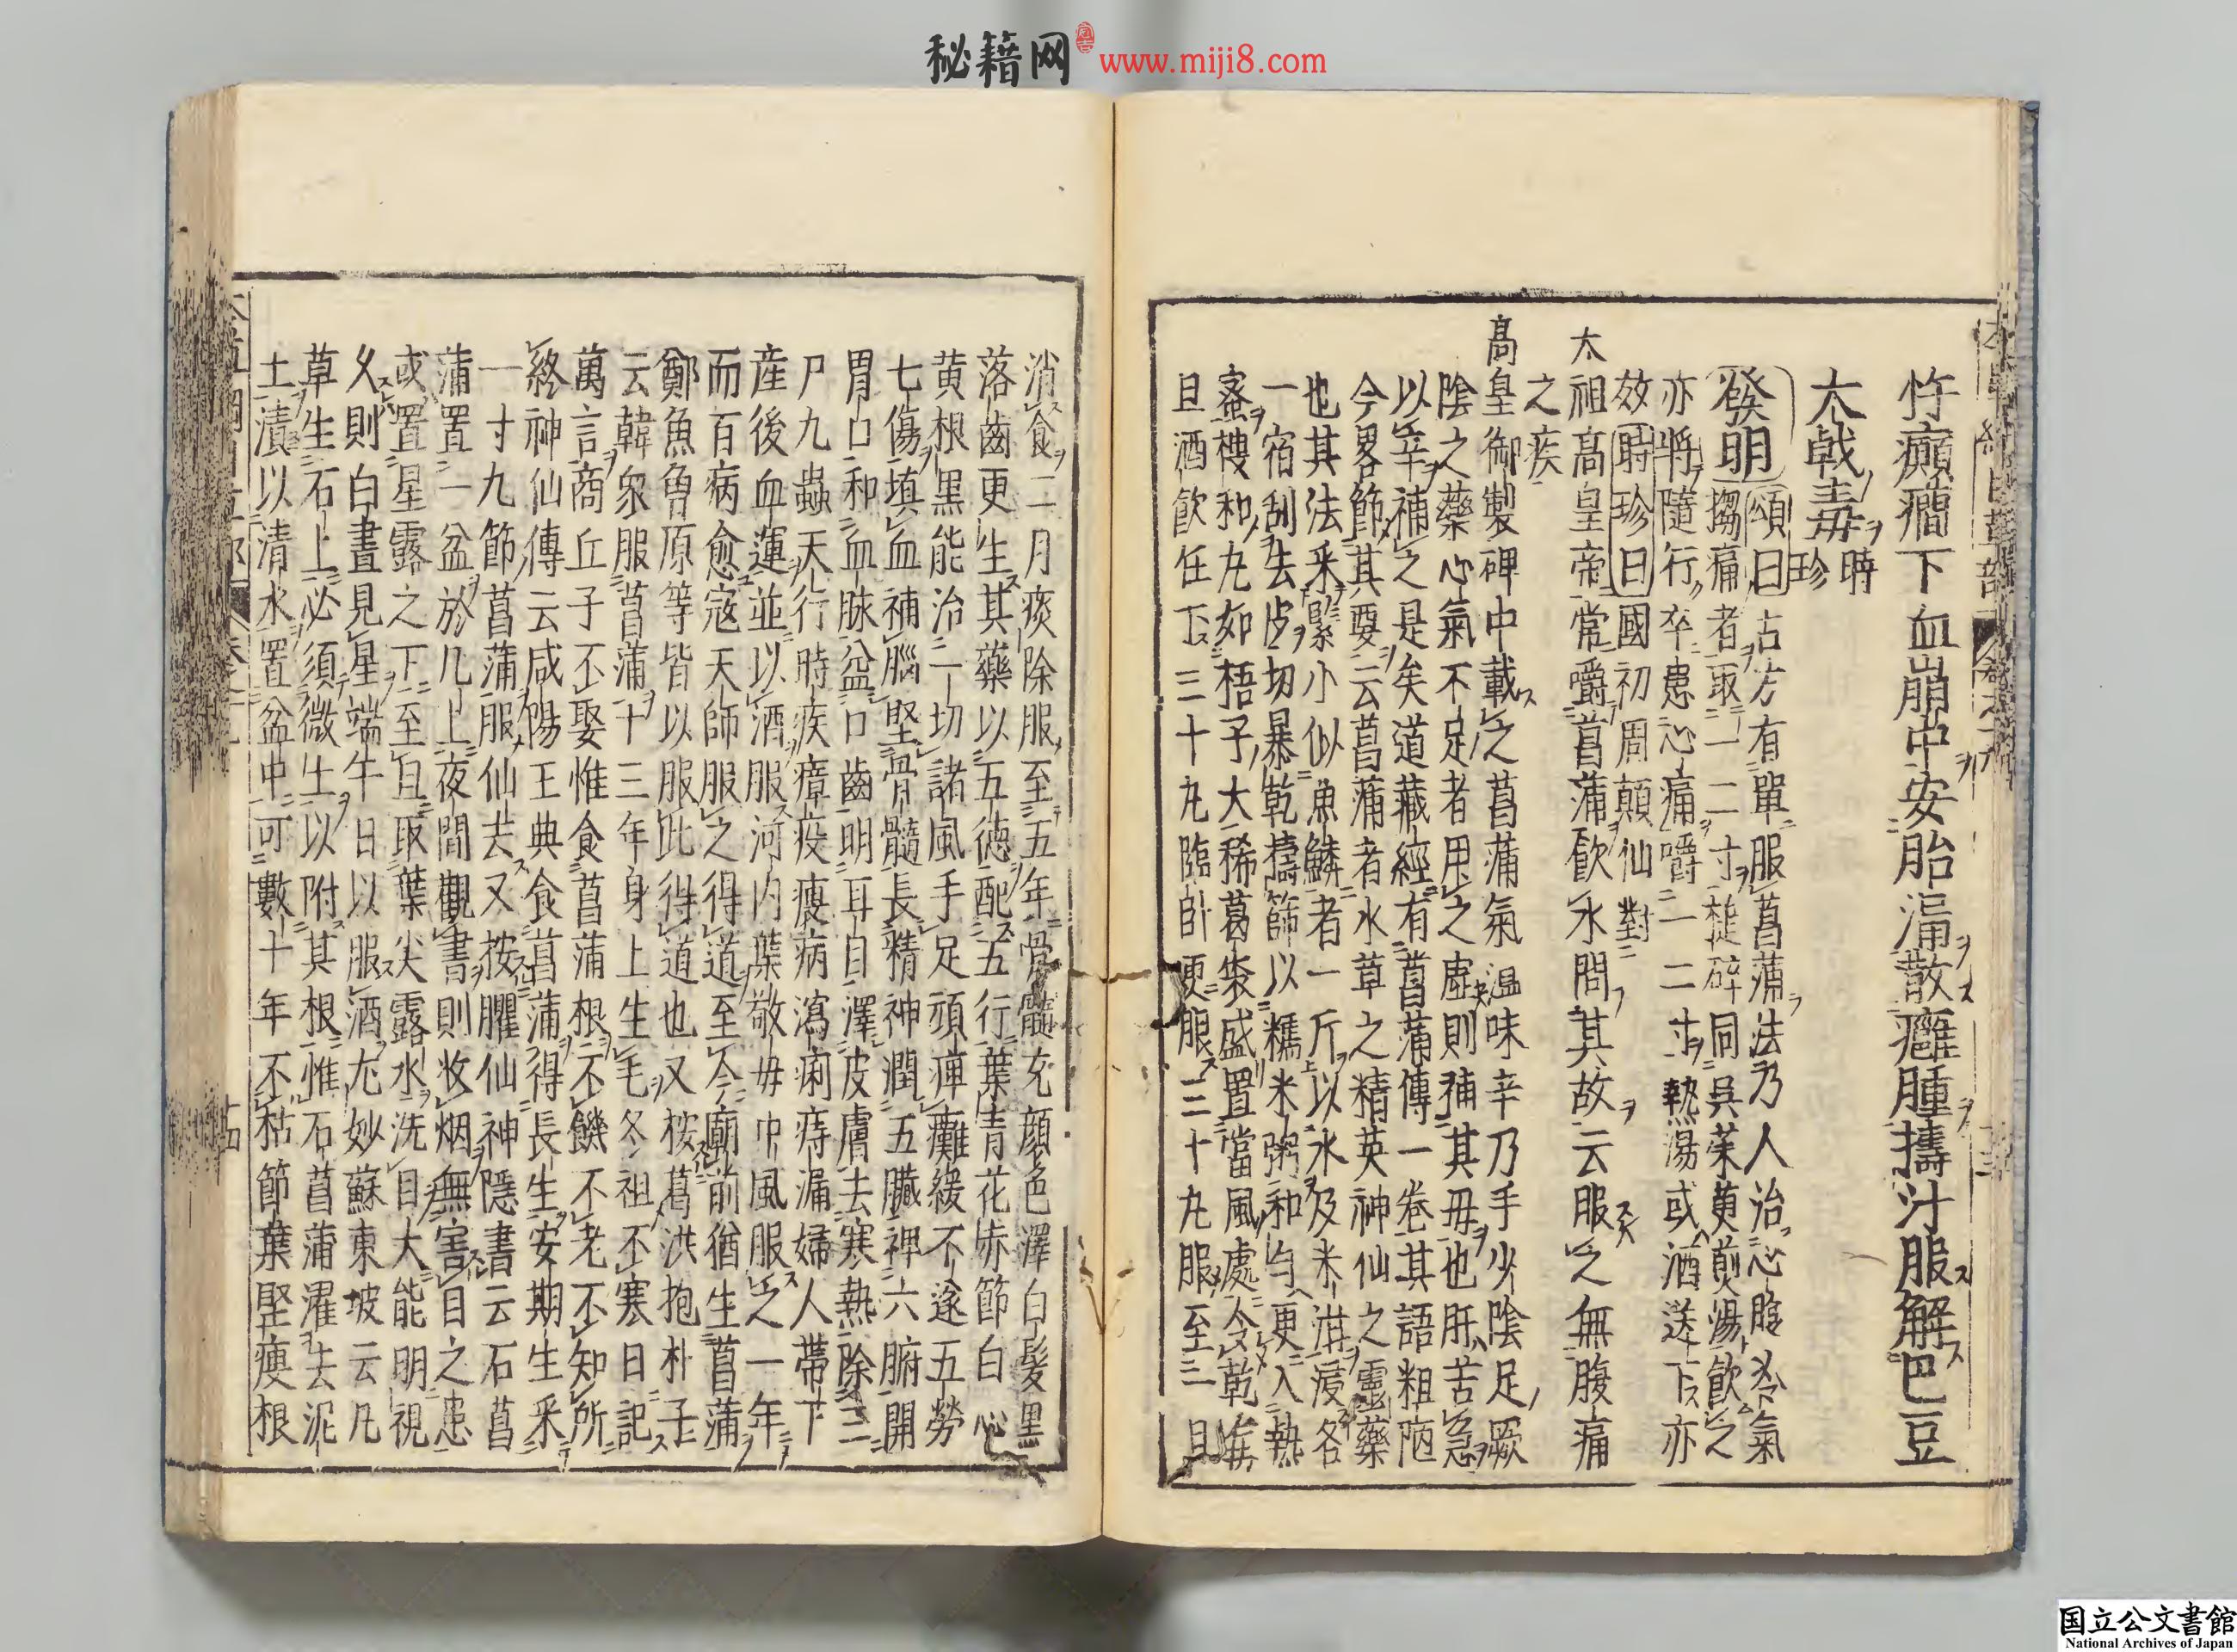 秘籍网 www.miji8.com
忤癲癎下血崩中安胎漏散癰腫擣汁服解巴豆
大戟毒時珍
發明頌曰古方有單服菖蒲法乃人治心腹冷氣
搊痛者取一二寸槌碎同吳茱萸煎湯飲之
亦將隨行卒患心痛嚼一二寸熱湯或酒送下亦
效時珍曰國初周顛仙對
太祖高皇帝常嚼菖蒲飲水問其故云服之無腹痛
之疾
高皇御製碑中載之菖蒲氣溫味辛乃手少陰足厥
陰之藥心氣不足者用之虛則補其母也肝苦急
以辛補之是矣道藏經有菖蒲傳一卷其語粗陋
今畧節其要云菖蒲者水草之精英神仙之靈藥
也其法采緊小似魚鱗者一斤以水及米泔浸各
一宿刮去皮切暴乾擣篩以糯米粥和勻更入熟
蜜搜和丸如梧子大稀葛袋盛置當風處令乾每
旦酒飲任下三十丸臨卧更服三十丸服至三月
消食二月痰除服至五年骨髓充顏色澤白髮黑
落齒更生其藥以五德配五行葉青花赤節白心
黃根黑能治一切諸風手足頑痺癱緩不遂五勞
七傷填血補腦堅骨髓長精神潤五臟裨六腑開
胃口和血脉益口齒明耳目澤皮膚去寒熱除三
尸九蟲天行時疾瘴疫瘦病瀉痢痔漏婦人帶下
産後血運並以酒服河內葉敬母中風服之一年
而百病愈寇天師服之得道至今廟前猶生菖蒲
鄭魚曾原等皆以服此得道也又按葛洪抱朴子
云韓衆服菖蒲十三年身上生毛冬袒不寒日記
萬言商丘子不娶惟食菖蒲根不饑不老不知所
終神仙傳云咸陽王典食菖蒲得長生安期生采
一寸九節菖蒲服仙去又按臞仙神隱書云石菖
蒲置一盆於几上夜間觀書則收烟無害目之患
或置星露之下至旦取葉尖露水洗目大能明視
久則白晝見星端午日以服酒尤妙蘇東坡云凡
草生石上必須微土以附其根惟石菖蒲濯去泥
土漬以清水置盆中可數十年不枯節葉堅瘦根
国立公文書館
National Archives of Japan